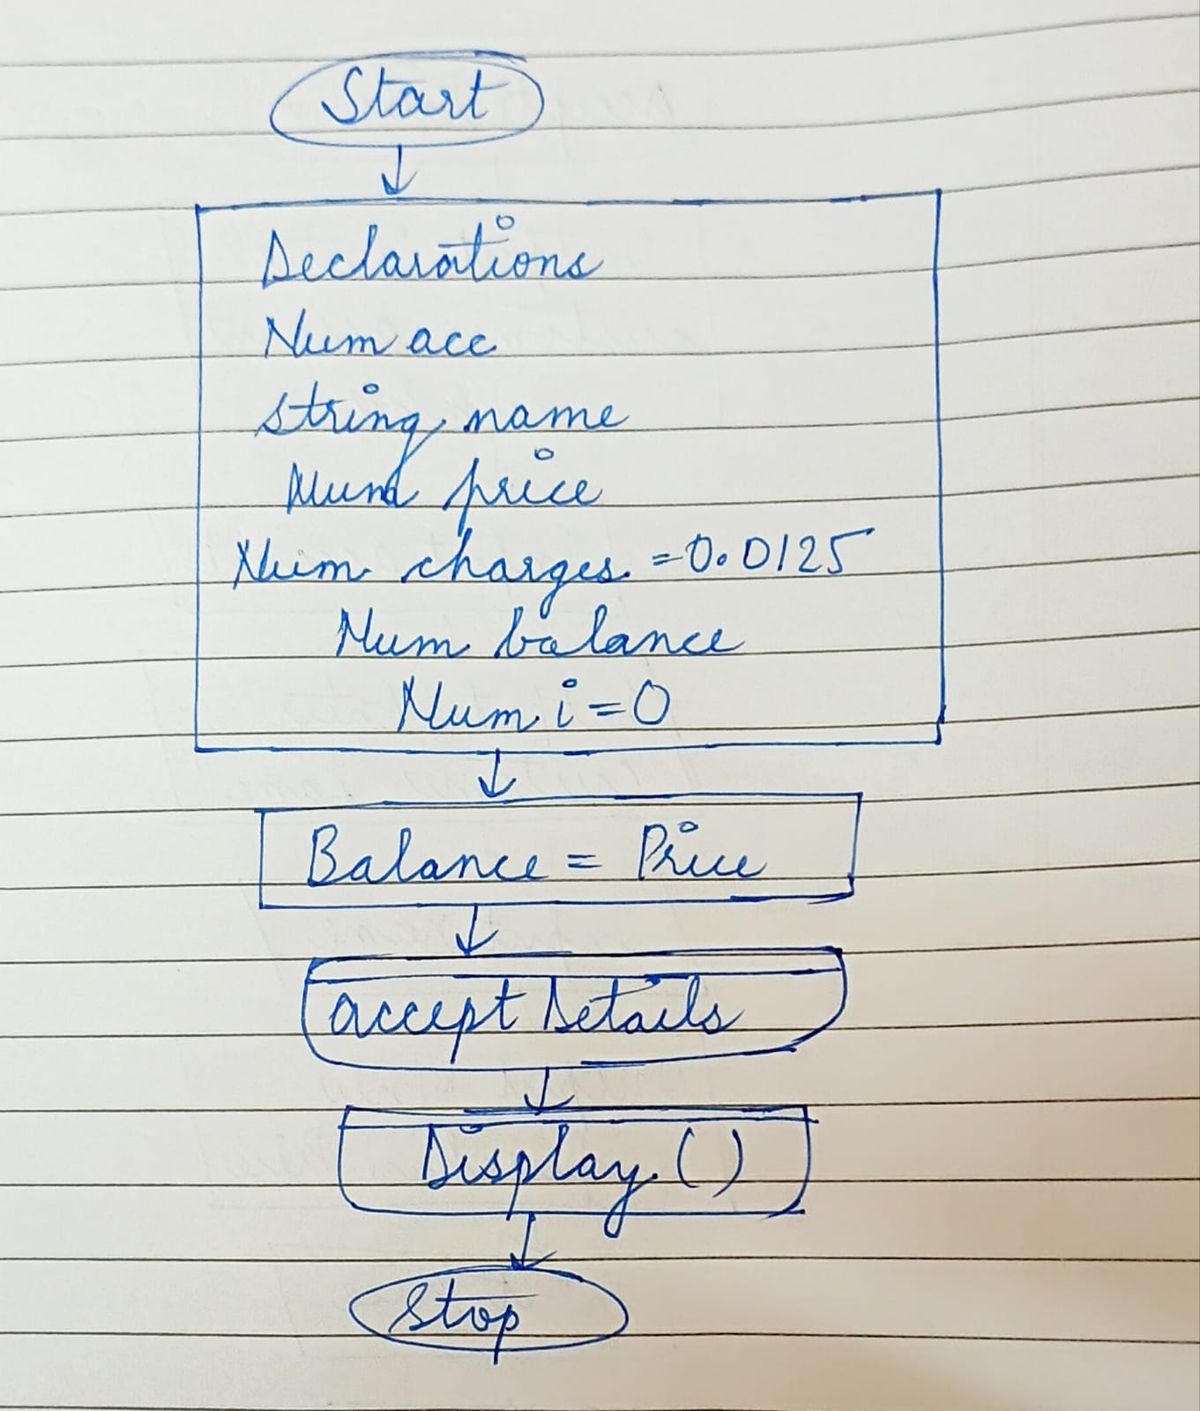 Start
Declarations
Num acc
string name
Num price
Num charges = 0.0125
Num balance
Num i = 0
Balance = Price
accept Details
Display ()
Stop